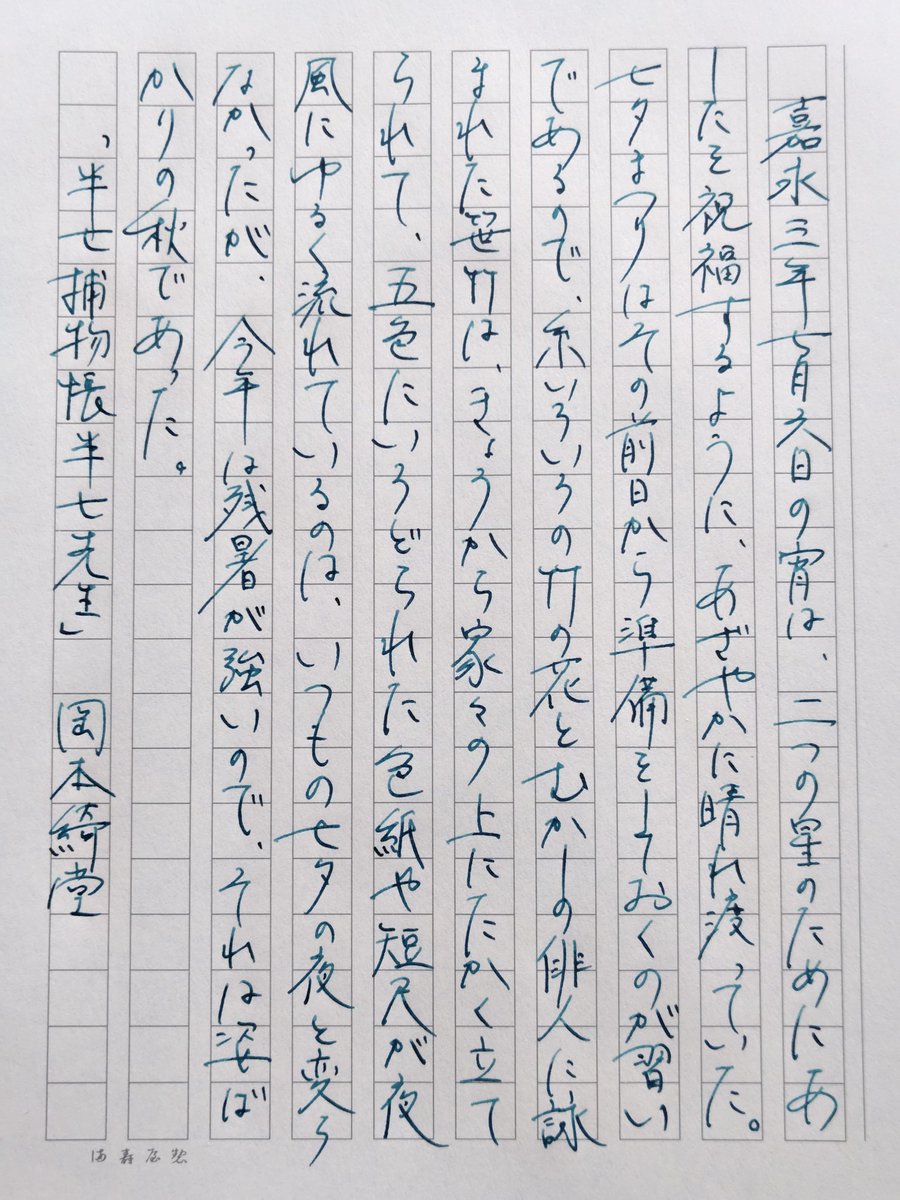 嘉永三年七月六日の宵は、二つの星のためにあ
したを祝福するように、あざやかに晴れ渡っていた。
七夕まつりはその前日から準備をしておくのが習い
であるので、糸いろいろの竹の花とむかしの俳人に詠
まれた笹竹は、きょうから家々の上にたかく立て
られて、五色にいろどられた色紙や短尺が夜
風にゆるく流れているのは、いつもの七夕の夜と変ら
なかったが、今年は残暑が強いので、それは姿ば
かりの秋であった。
「半七捕物帳半七先生」 岡本綺堂
満寿屋製